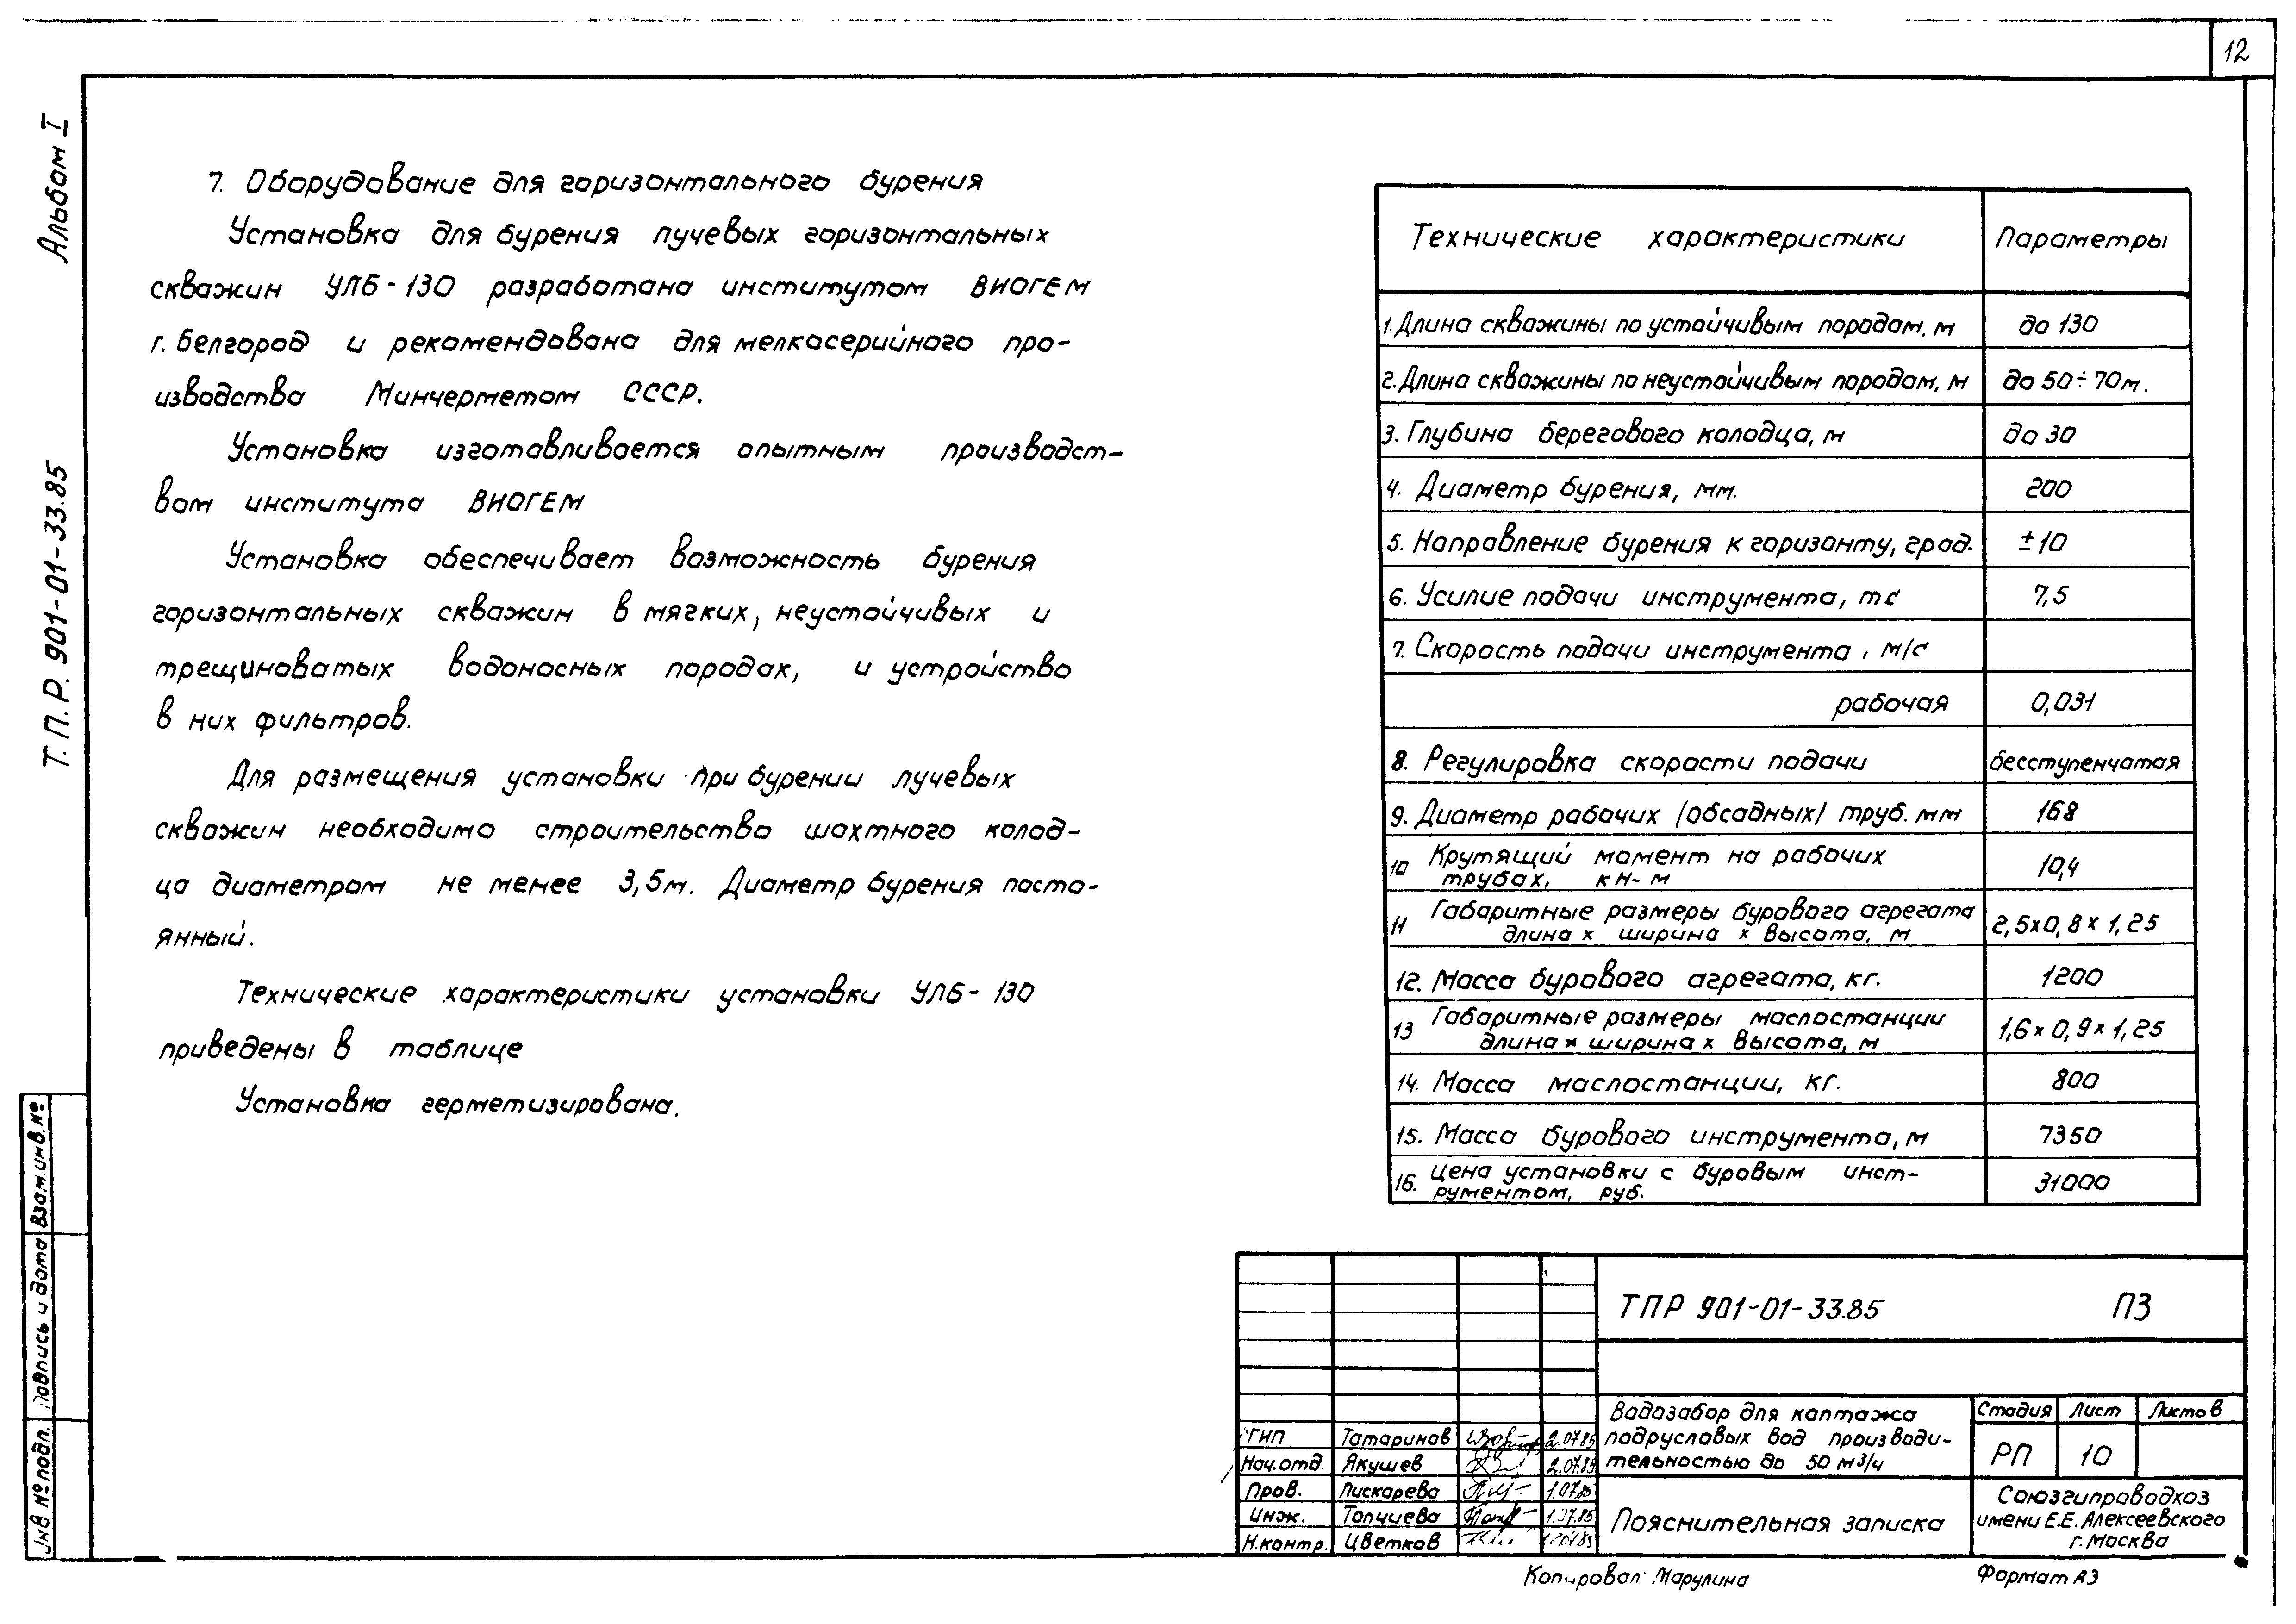 12
Альбом I
Т.П.Р. 901-01-33.85
7. Оборудование для горизонтального бурения
Установка для бурения лучевых горизонтальных
скважин УЛБ-130 разработана институтом ВИОГЕМ
г. Белгород и рекомендована для мелкосерийного про-
изводства Минчерметом СССР.
Установка изготавливается опытным производст-
вом института ВИОГЕМ
Установка обеспечивает возможность бурения
горизонтальных скважин в мягких, неустойчивых и
трещиноватых водоносных породах, и устройство
в них фильтров.
Для размещения установки при бурении лучевых
скважин необходимо строительство шахтного колод-
ца диаметром не менее 3,5м. Диаметр бурения посто-
янный.
Технические характеристики установки УЛБ-130
приведены в таблице
Установка герметизирована.
Технические характеристики Параметры
1. Длина скважины по устойчивым породам, м до 130
2. Длина скважины по неустойчивым породам, м до 50÷70м.
3. Глубина берегового колодца, м до 30
4. Диаметр бурения, мм. 200
5. Направление бурения к горизонту, град. ±10
6. Усилие подачи инструмента, тс 7,5
7. Скорость подачи инструмента, м/с
рабочая 0,031
8. Регулировка скорости подачи бесступенчатая
9. Диаметр рабочих (обсадных) труб. мм 168
10 Крутящий момент на рабочих
трубах, кН-м 10,4
11 Габаритные размеры бурового агрегата
длина х ширина х высота, м 2,5х0,8х1,25
12. Масса бурового агрегата, кг. 1200
13 Габаритные размеры маслостанции
длина х ширина х высота, м 1,6х0,9х1,25
14. Масса маслостанции, кг. 800
15. Масса бурового инструмента, м 7350
16. Цена установки с буровым инст-
рументом, руб. 31000
Взам.инв.№
Подпись и дата
Инв № подл.
ТПР 901-01-33.85 ПЗ
Водозабор для каптажа
подрусловых вод производи-
тельностью до 50 м³/ч
Стадия Лист Листов
РП 10
ГИП Татаринов 2.07.85
Нач.отд. Якушев 2.07.85
Пров. Пискарева 1.07.85
Инж. Топчиева 1.07.85
Н.контр. Цветков
Пояснительная записка
Союзгипроводхоз
имени Е.Е. Алексеевского
г. Москва
Копировал: Марулина Формат А3